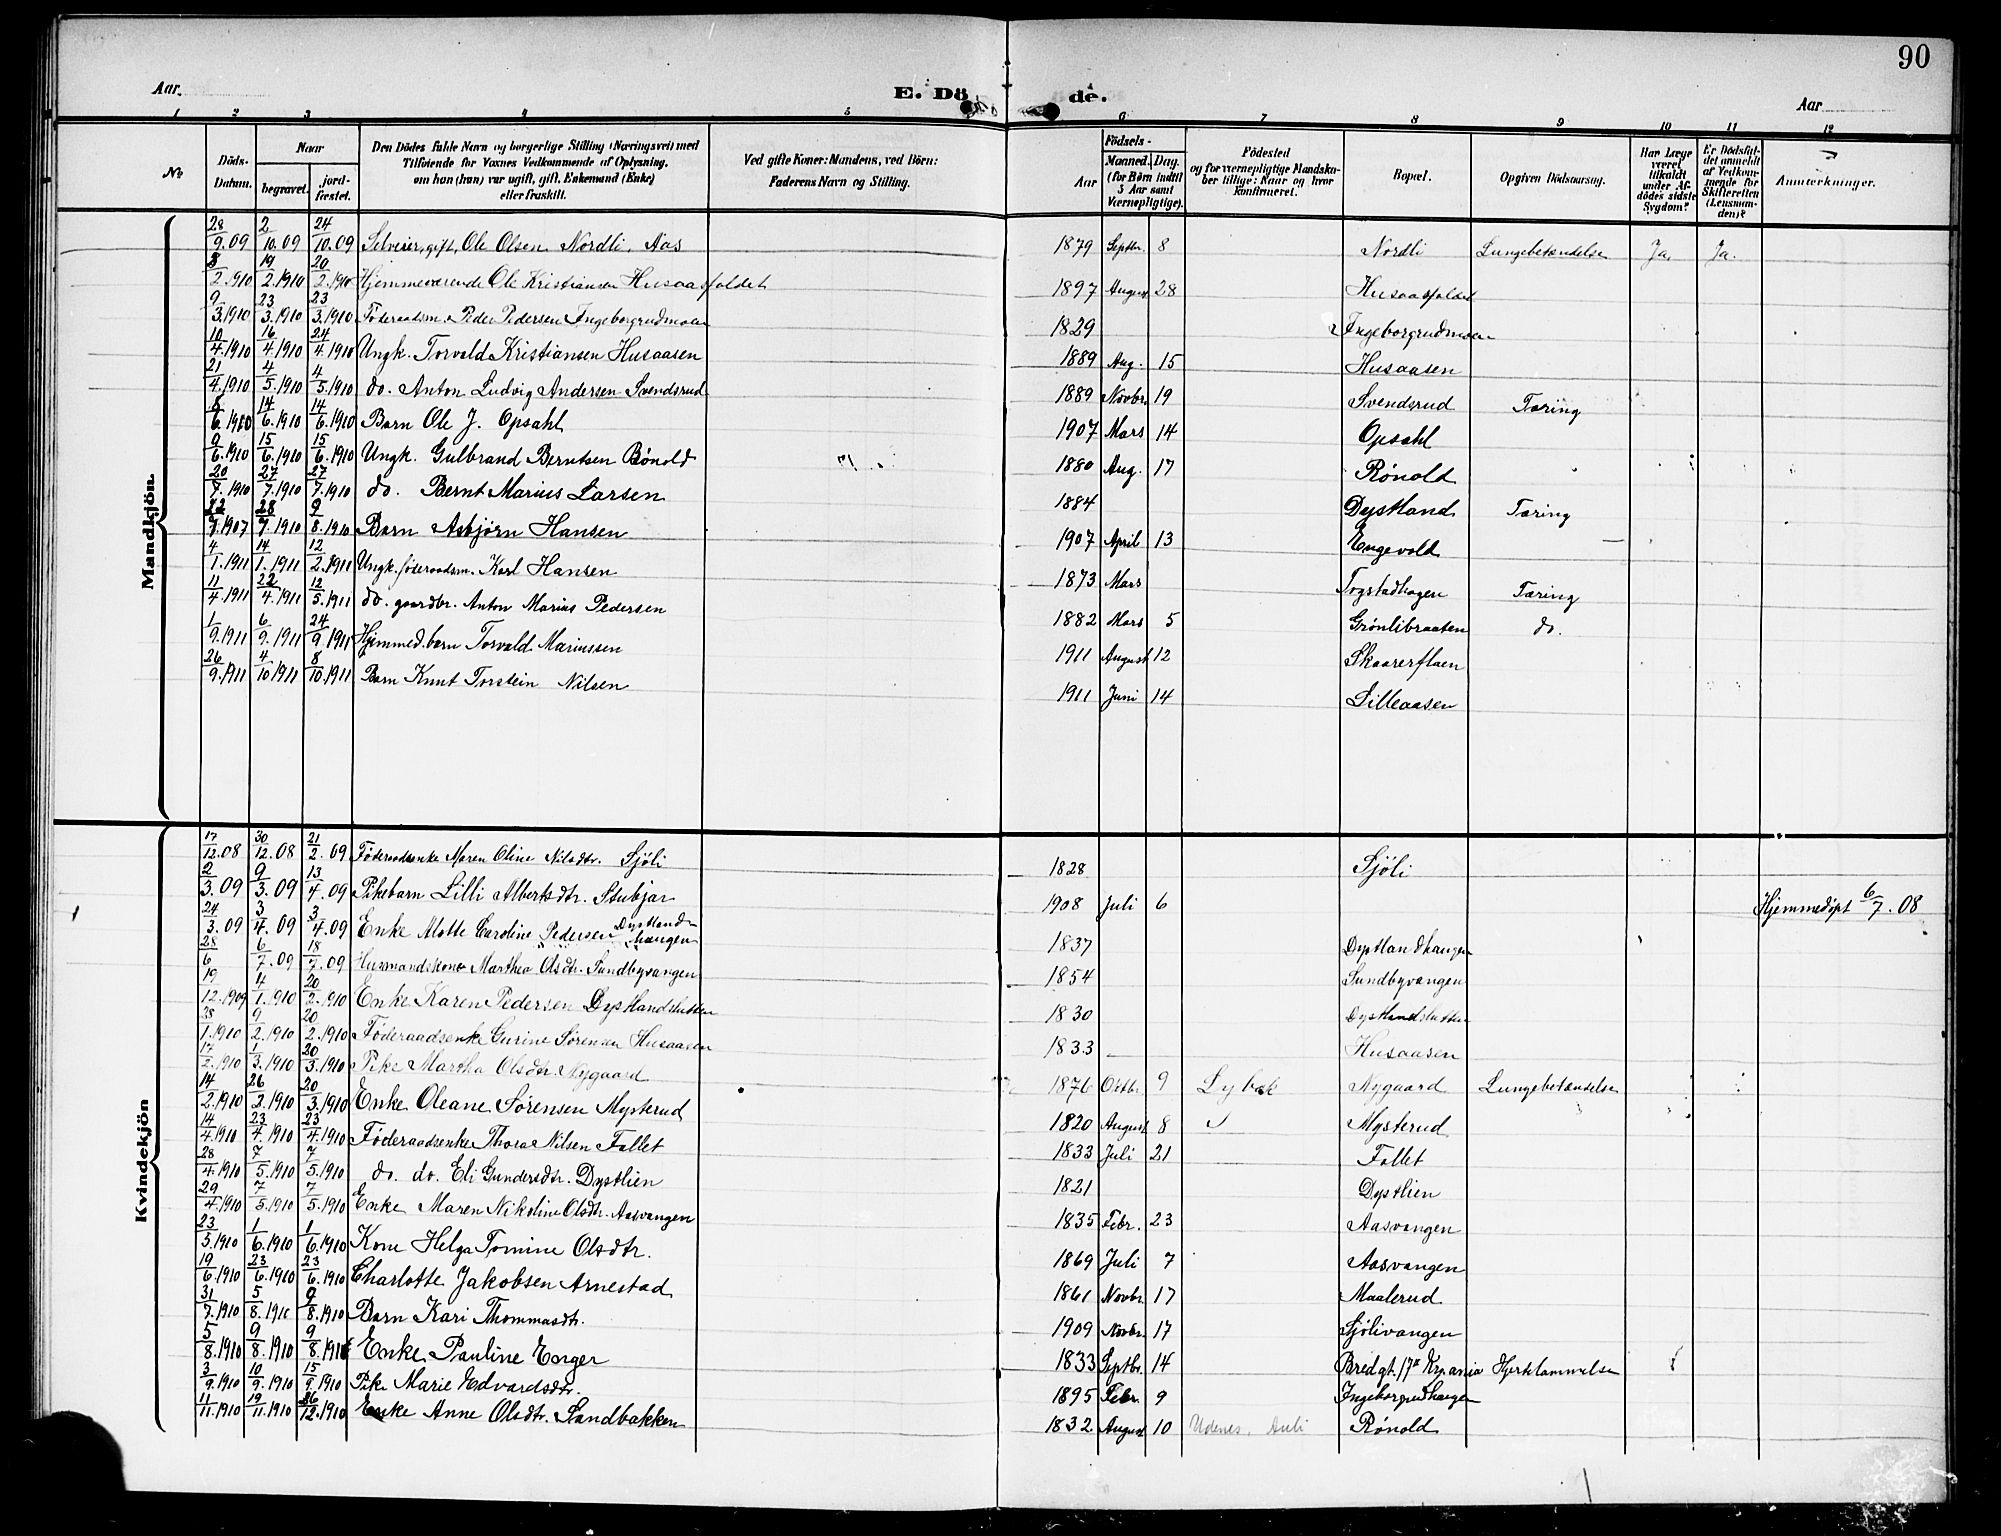 90
Aar.
E. Dö
de.
Aar
1 2 3 4 5 6 7 8 9 10 11 12
No
Döds-Datum.
Naar
begravet.
jord-fæstet.
Den Dödes fulde Navn og borgerlige Stilling (Næringsvei) med
Tilföiende for Voxnes Vedkommende af Oplysning,
om han (hun) var ugift, gift, Enkemand (Enke)
eller fraskilt.
Ved gifte Koner: Mandens, ved Börn:
Faderens Navn og Stilling.
Födsels-
Aar
Maaned. Dag.
(for Børn indtil
3 Aar samt
Værnepligtige).
Födested
og for værnepligtige Mandska-
ber tillige: Naar og hvor
konfirmeret.
Bopæl.
Opgiven Dödsaarsag.
Har Læge
været
tilkaldt
under Af-
dödes sidste
Sygdom?
Er Dödsfal-
det anmeldt
af Vedkom-
mende for
Skifteretten
(Lensman-
den)?
Anmærkninger.
Mandkjön.
28/9.09 2/10.09 24/10.09 Selveier, gift, Ole Olsen Nordli, Aas 1879 Septbr. 8 Nordli Lungebetændelse Ja. Ja.
3/2.1910 19/2.1910 20/2.1910 Hjemmeværende Ole Kristiansen Husaasfaldet 1897 August 28 Husaasfaldet
9/3.1910 23/3.1910 23/3.1910 Föderaadsm. Peder Pedersen Ingeborgrudmoen 1829 Ingeborgrudmoen
10/4.1910 16/4.1910 24/4.1910 Ungk. Torvald Kristiansen Husaasen 1889 Aug. 15 Husaasen
21/4.1910 4/5.1910 4/5.1910 do. Anton Ludvig Andersen Svendsrud 1889 Novbr. 19 Svendsrud Tæring
5/6.1910 14/6.1910 14/6.1910 Barn Ole J. Opsahl 1907 Mars 14 Opsahl
9/6.1910 15/6.1910 15/6.1910 Ungk. Gulbrand Berntsen Rönold 1880 Aug. 17 Rönold
20/7.1910 27/7.1910 27/7.1910 do. Bernt Marius Larsen 1884 Dystland Tæring
22/7.1907 28/7.1910 9/8.1910 Barn Asbjörn Hansen 1907 April 13 Engevold
4/1.1911 14/1.1911 12/2.1911 Ungk. föderaadsm. Karl Hansen 1873 Mars Togstadhagen Tæring
11/4.1911 22/4.1911 12/5.1911 do. gaardbr. Anton Marius Pedersen 1882 Mars 5 Grönlibraaten do.
1/9.1911 6/9.1911 24/9.1911 Hjemmed. barn Torvald Mariussen 1911 August 12 Skaarerflaen
26/9.1911 4/10 1911 8/10.1911 Barn Knut Torstein Nilsen 1911 Juni 14 Lilleaasen
Kvindekjön
17/12.08 30/12.08 21/2.09 Föderaadsenke Maren Oline Nilsdtr. Sjöli 1828 Sjöli
2/3.09 9/3.09 13/4.09 Pikebarn Lilli Albertsdtr. Stubjar 1908 Juli 6 Hjemmedöpt 6/7.08
24/3.09 3/4.09 3/4.09 Enke Alotte Caroline Pedersen Dystlandhaugen 1837 Dystlandhaugen
28/6 6/7.09 18/7.09 Husmandskone Marthea Olsdtr. Sundbyvangen 1854 Sundbyvangen
19/12.1909 4/1.1910 20/2.1910 Enke Karen Pedersen Dystlandshutten 1830 Dystlandshutten
28/1.1910 9/2.1910 20/2.1910 Föderaadsenke Gurine Sörensen Husaasen 1833 Husaasen
17/2.1910 1/3.1910 20/3.1910 Pike Martha Olsdtr. Nygaard 1876 Oktbr. 9 Lybæk Nygaard Lungebetændelse
14/2.1910 26/2.1910 20/3.1910 Enke Oleane Sörensen Mysterud 1820 August 8 Mysterud
14/4.1910 23/4.1910 23/4.1910 Föderaadsenke Thora Nilsen Fallet 1833 Juli 21 Fallet
28/4.1910 7/5.1910 7/5.1910 do. do. Eli Gundersdtr. Dystlien 1821 Dystlien
29/4.1910 7/5.1910 7/5.1910 Enke Maren Nikoline Olsdtr. Aasvangen 1835 Febr. 23 Aasvangen
23/5.1910 1/6.1910 1/6.1910 Kone Helga Tomine Olsdtr. 1869 Juli 7 Aasvangen
19/6.1910 23/6.1910 23/6.1910 Charlotte Jakobsen Arnestad 1861 Novbr. 17 Maalerud
31/7.1910 5/8.1910 9/8.1910 Barn Kari Thommasdtr. 1909 Novbr. 17 Sjölivangen
5/8.1910 9/8.1910 9/8.1910 Enke Pauline Enger 1833 Septbr. 14 Bredgt. 17 Krania Hjertelammelse
3/9.1910 10/9.1910 15/9.1910 Pike Marie Edvardsdtr. 1895 Febr. 9 Ingeborgrudhaugen
11/11.1910 19/11.1910 26/12.1910 Enke Anne Olsdtr. Sandbakken 1832. August 10 Udenes, Auli Rönold